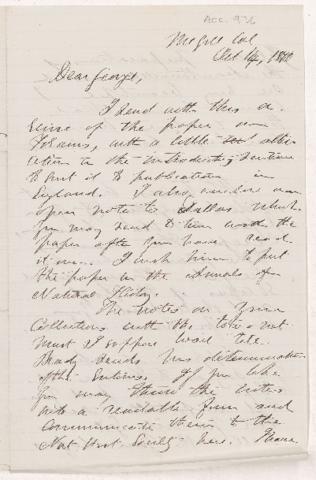 Acc. 936
McGill Col
Oct 14, 18
Dear George,
I send with this a
of the paper on
with a little
in the introductory
to suit it to publication in
England. I also enclose an
open note to Dallas which
you may send to him with the
paper after you have read
it over. I wish him to put
the paper in the Annals of
Natural History.
The notes on your
Collections with the
must I suppose wait till
his determination
of the If you like
you may throw the notes
into a readable form and
communicate them to the
Nat Hist Society here. Please